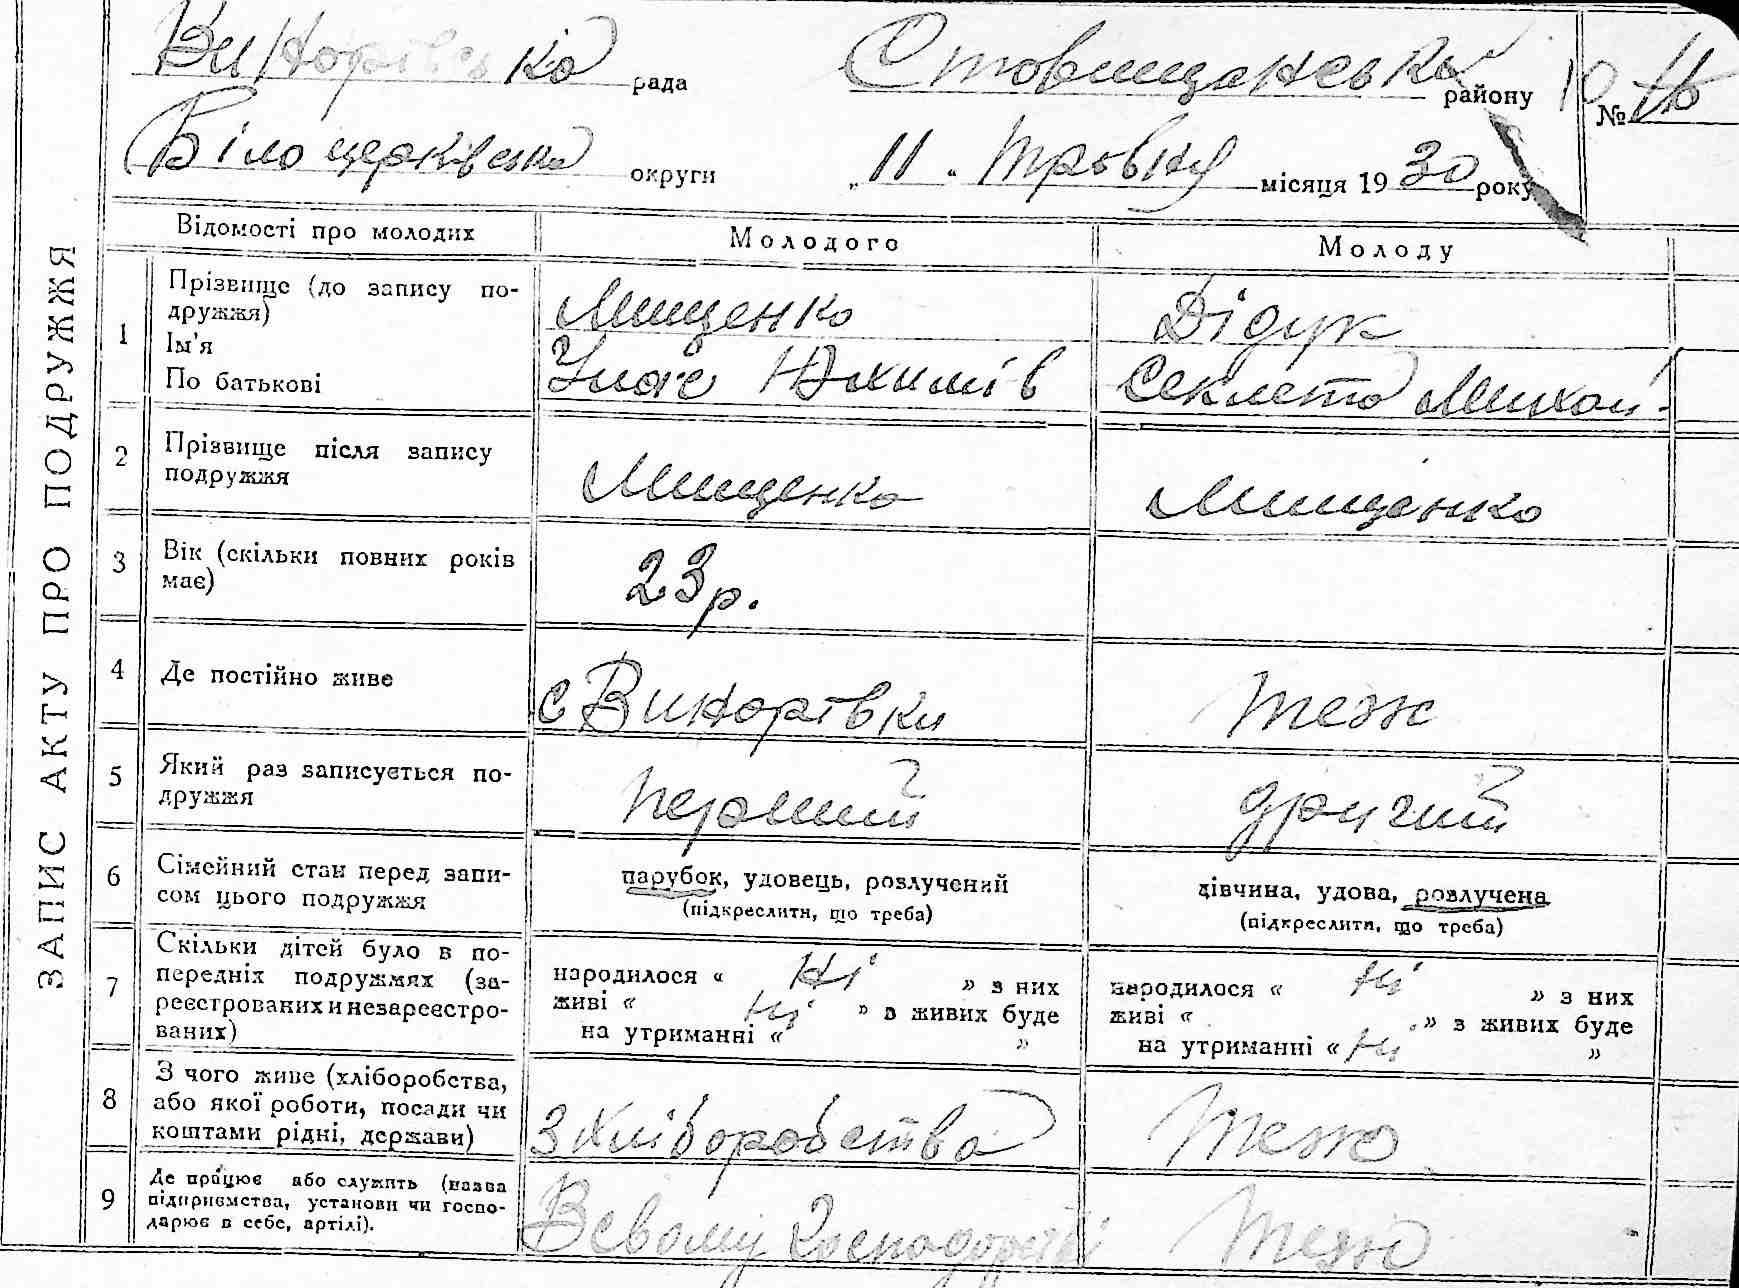 Винорівська рада Стовищанська району 10 № 16
Білоцерківська округи „ 11 . Травня місяця 19 30 року
ЗАПИС АКТУ ПРО ПОДРУЖЖЯ
Відомості про молодих Молодого Молоду
1 Прізвище (до запису по-
дружжя) Мищенко Дідук
Ім'я
По батькові Юхимів Секлета Михай-
2 Прізвище після запису
подружжя Мищенко Мищенко
3 Вік (скільки повних років
має) 23 р.
4 Де постійно живе с Винорівки теж
5 Який раз записується по-
дружжя перший другий
6 Сімейний стан перед запи-
сом цього подружжя
парубок, удовець, розлучений
(підкреслити, що треба)
дівчина, удова, розлучена
(підкреслити, що треба)
7 Скільки дітей було в по-
передніх подружжях (за-
реєстрованих и незареєстро-
ваних)
народилося « Ні » з них
живі « Ні » з живих буде
на утриманні « »
народилося « Ні » з них
живі « » з живих буде
на утриманні « Ні »
8 З чого живе (хліборобства,
або якої роботи, посади чи
коштами рідні, держави) З хліборобства Теж
9 Де працює або служить (назва
підприємства, установи чи госпо-
дарює в себе, артілі). В свому господарстві Теж